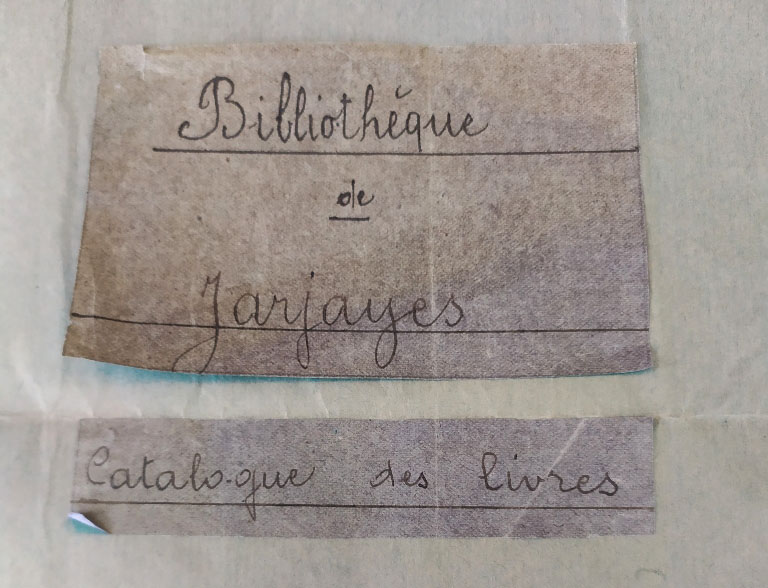 Bibliothèque
de
Jarjayes
Catalogue des livres